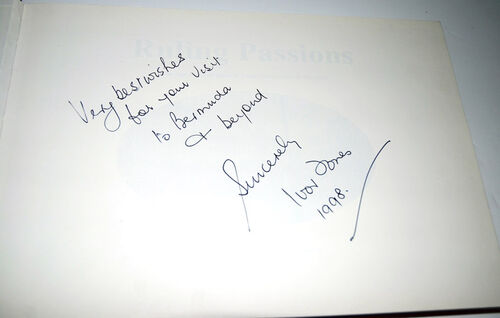 Ruling Passions
Very best wishes
for your visit
to Bermuda
& beyond
Sincerely
Ivor Jones
1998.